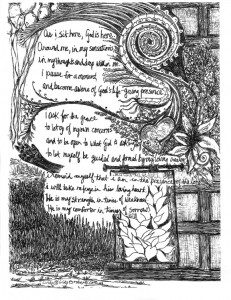 As I sit here, God is here
Around me, in my sensations
in my thoughts and deep within me
I pause for a moment
and become aware of God's life-giving presence
I ask for the grace
to let go of my own concerns
and to be open to what God is asking
to let myself be guided and formed by my loving Creator
I remind myself that I am in the presence of the
I will take refuge in his loving heart
He is my strength in times of weakness
He is my comforter in times of sorrow